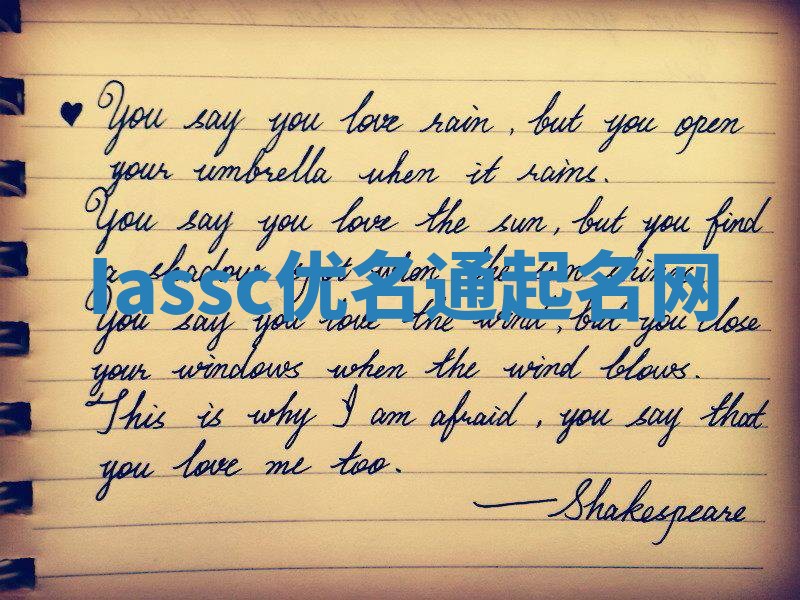 ♥ You say you love rain, but you open
your umbrella when it rains.
You say you love the sun, but you find
a shadow spot when the sun shines.
Iassc优名通起名网
You say you love the wind, but you close
your windows when the wind blows.
This is why I am afraid, you say that
you love me too.
— Shakespeare